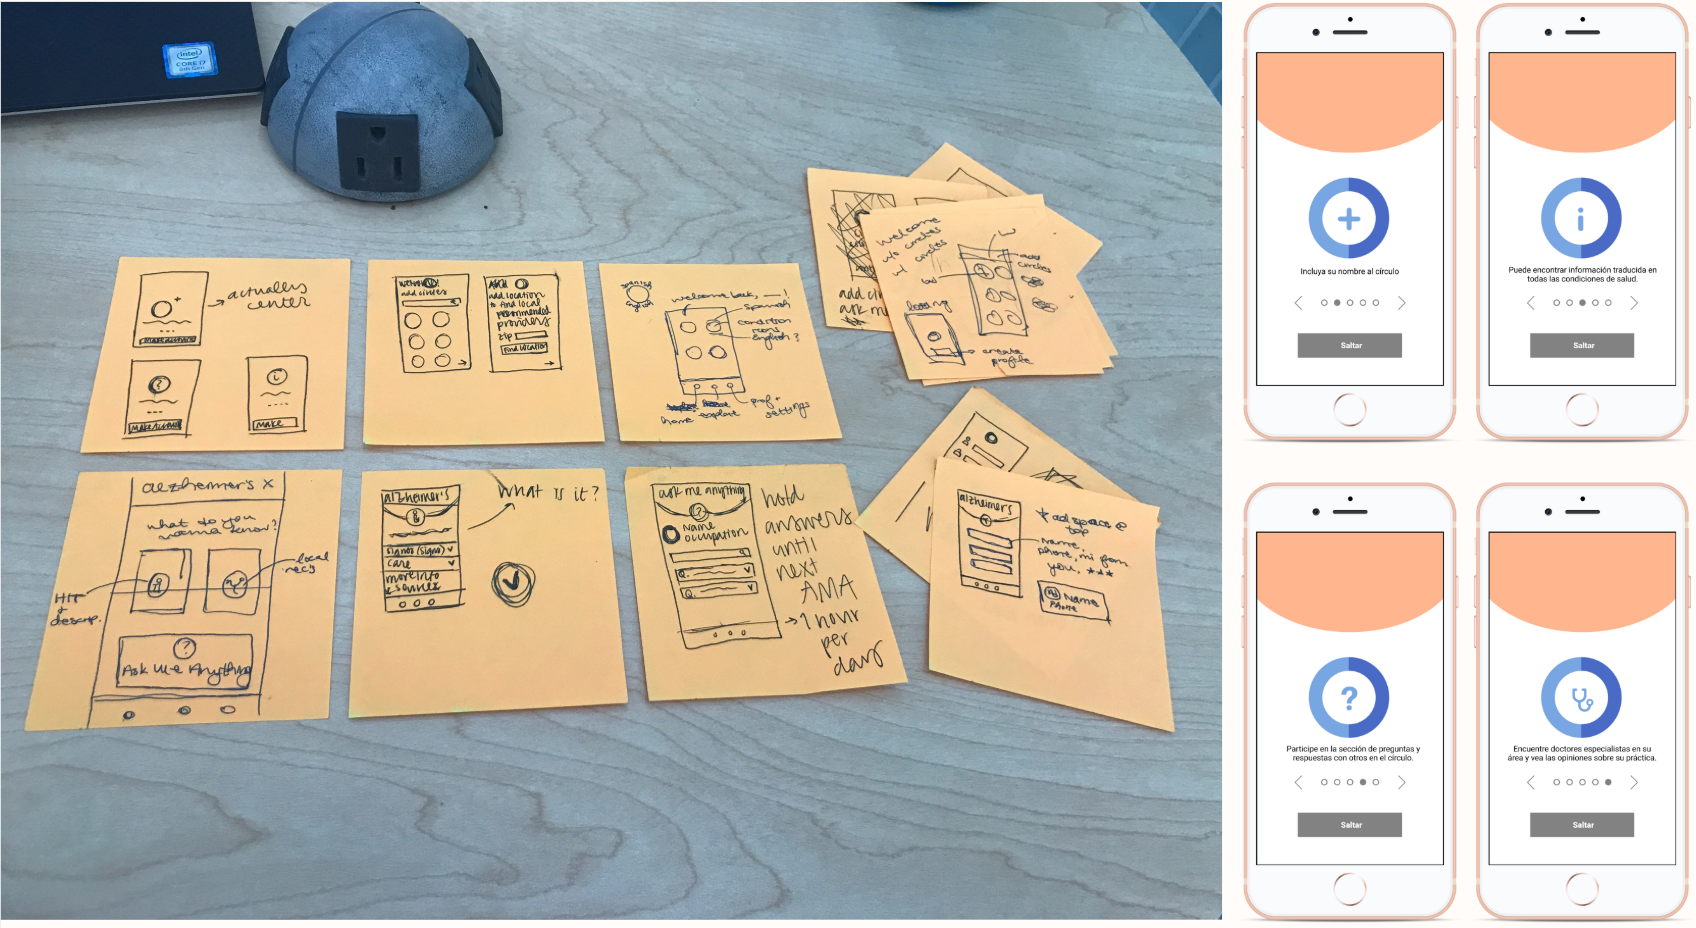 intel
CORE i7
8th Gen
actually
center
add circles
add location
to find local
recommended
providers
zip
find location
Spanish
English
welcome back, __!
Spanish
condition
English?
home
explore
prof +
settings
welcome
w/o circles
w/ circles
add
circles
create
profile
ask me
alzheimer's X
what do you
wanna know?
local
recs
HIT
+
descrip.
?
Ask Me Anything
alzheimer's
What is it?
signos (signs)
care
more info
ask me anything
?
Name
occupation
Q.
Q.
hold
answers
until
next
AMA
→ 1 hour
per
day
alzheimer's
* ad space @
top
Name,
phone, mi from
you. ***
Ad Name
Phone
Incluya su nombre al círculo
Saltar
Puede encontrar información traducida en
todas las condiciones de salud.
Saltar
?
Participe en la sección de preguntas y
respuestas con otros en el círculo.
Saltar
Encuentre doctores especialistas en su
área y vea las opiniones sobre su práctica.
Saltar